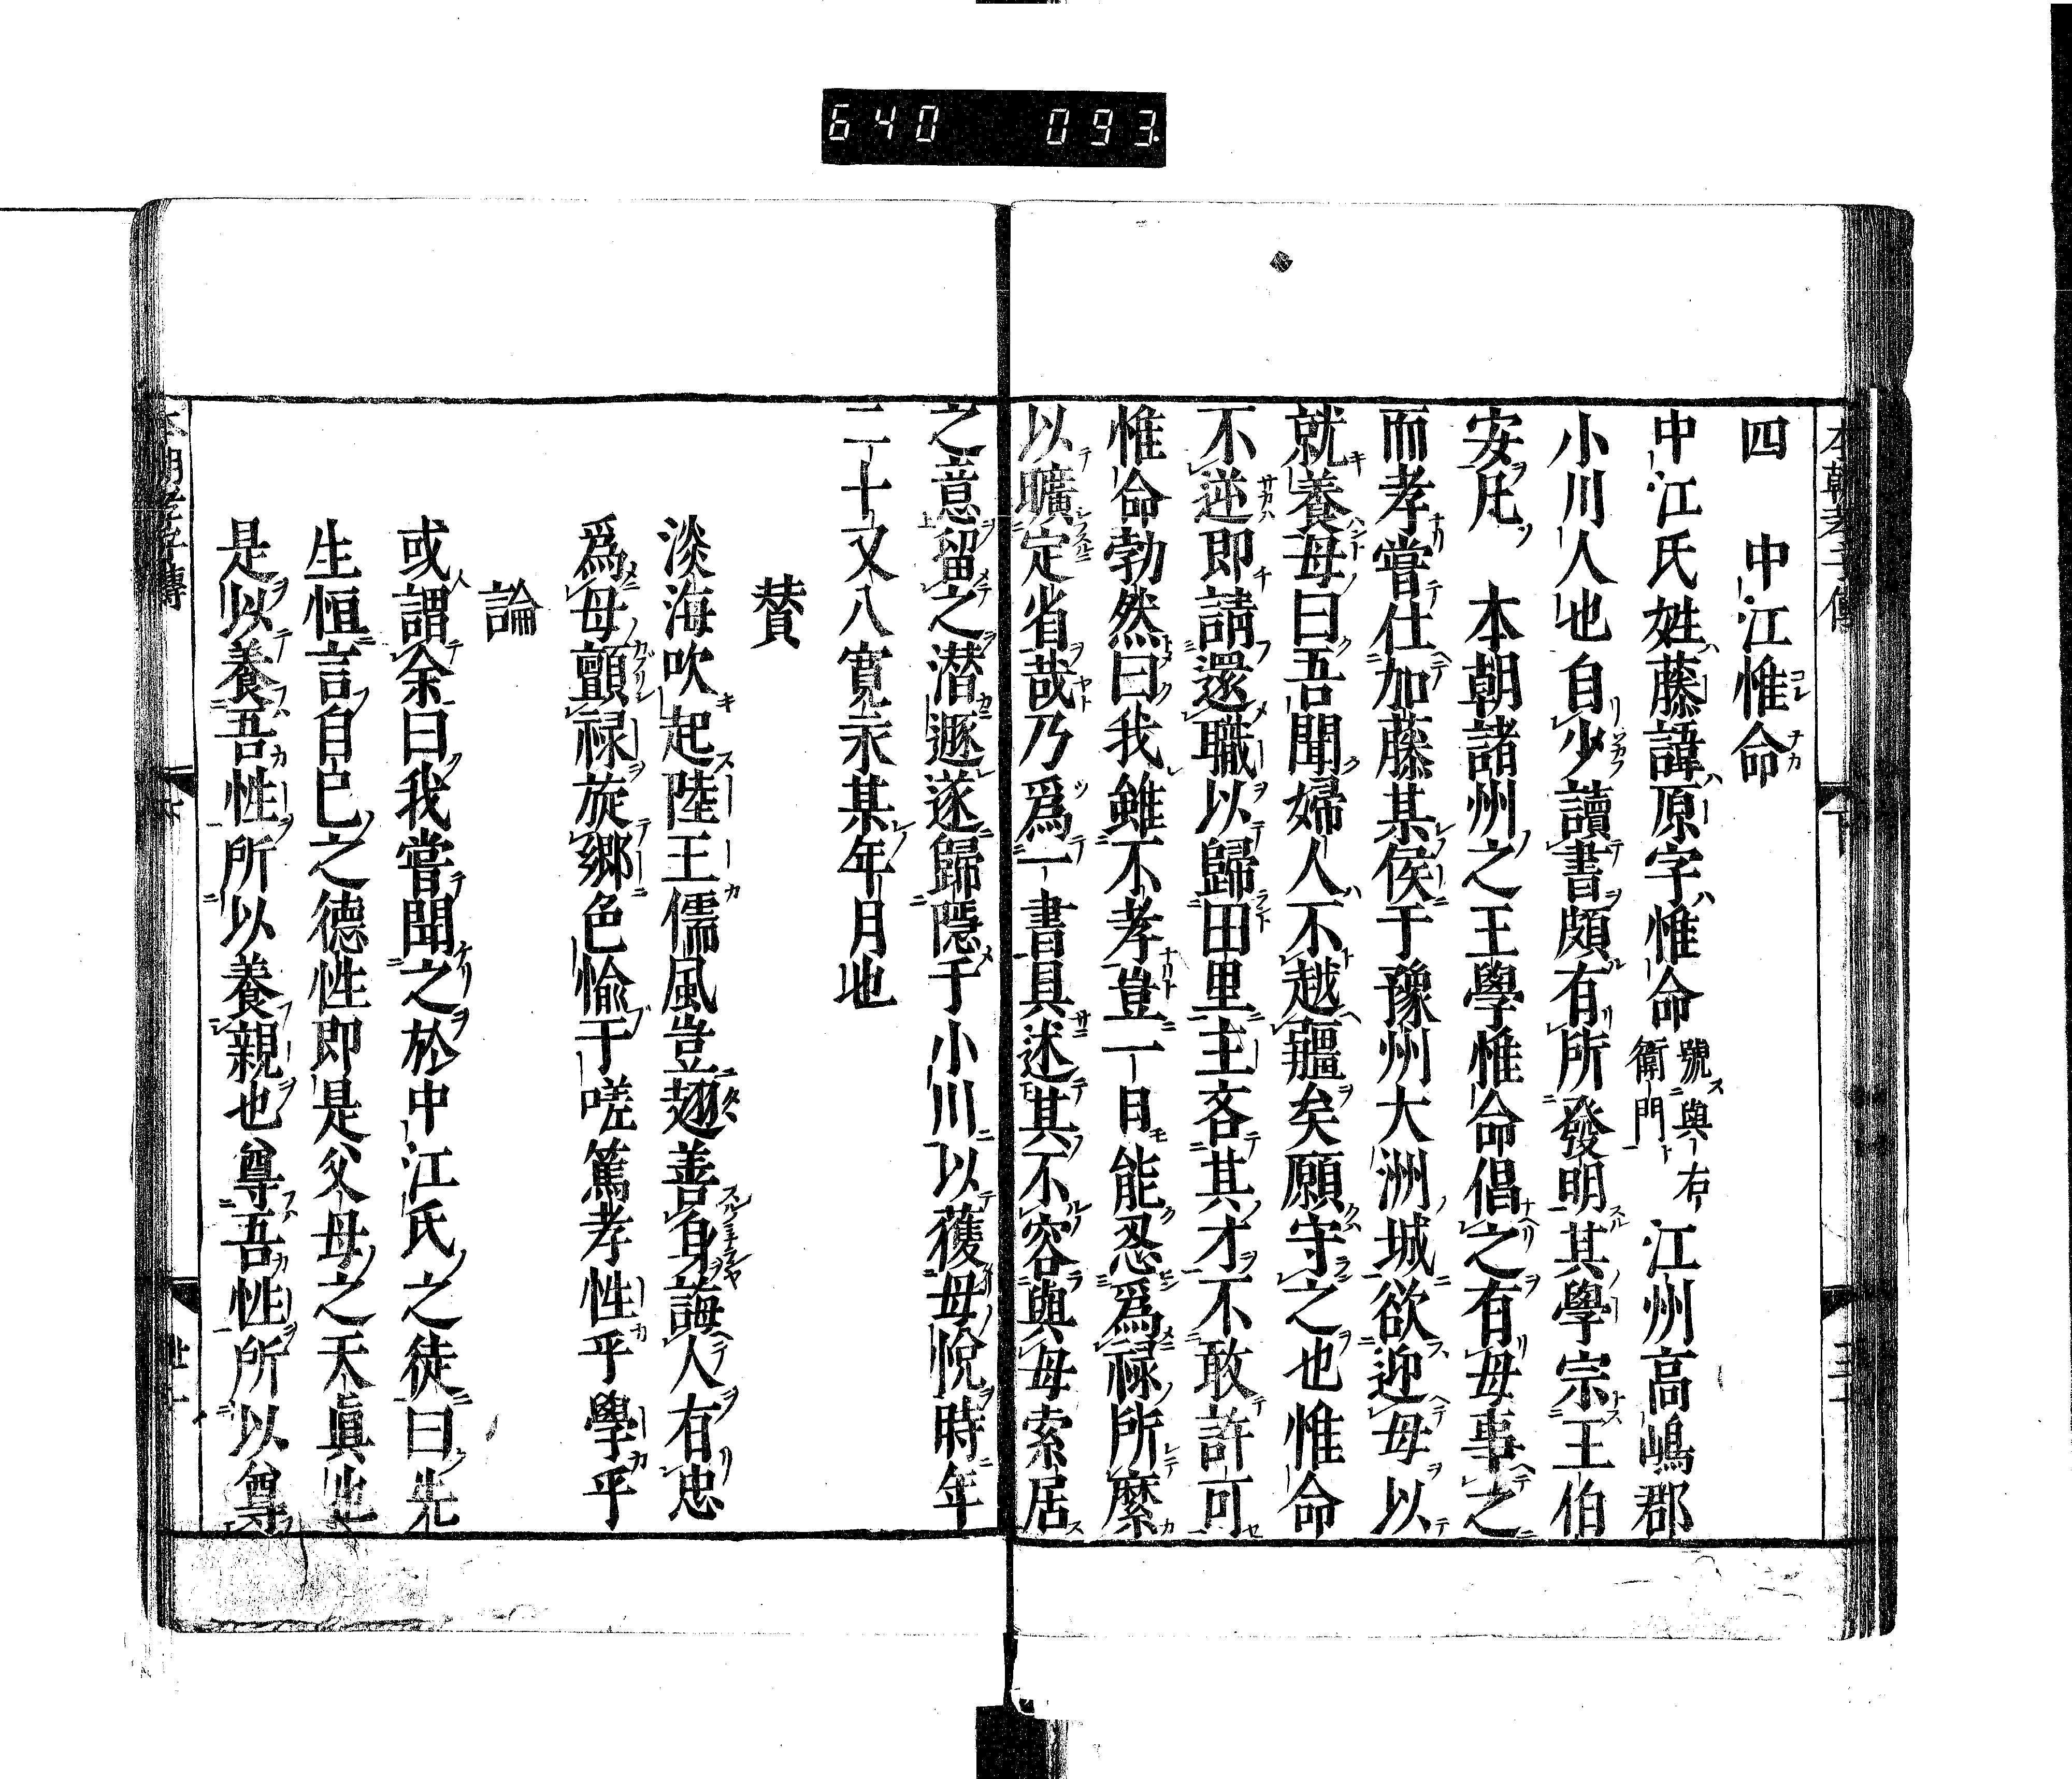 640 093
本朝孝子傳 下 三十
四 中江惟命
中江氏姓藤諱原字惟命號與右衛門江州高嶋郡
小川人也自少讀書頗有所發明其學宗王伯
安凡 本朝諸州之王學惟命倡之有母事之
而孝嘗仕加藤某侯于豫州大洲城欲迎母以
就養母曰吾聞婦人不越疆矣願守之也惟命
不逆即請還職以歸田里主吝其才不敢許可
惟命勃然曰我雖不孝豈一日能忍爲祿所縻
以曠定省哉乃爲一書具述其不容與母索居
之意留之潛遯遂歸隱于小川以獲母悅時年
二十又八寬永某年月也
賛
淡海吹起陸王儒風豈趐善身誨人有忠
爲母顫祿旋鄉色愉于嗟篤孝性乎學乎
論
或謂余曰我嘗聞之於中江氏之徒曰先
生恒言自己之德性即是父母之天眞也
是以養吾性所以養親也尊吾性所以尊
本朝孝子傳 下